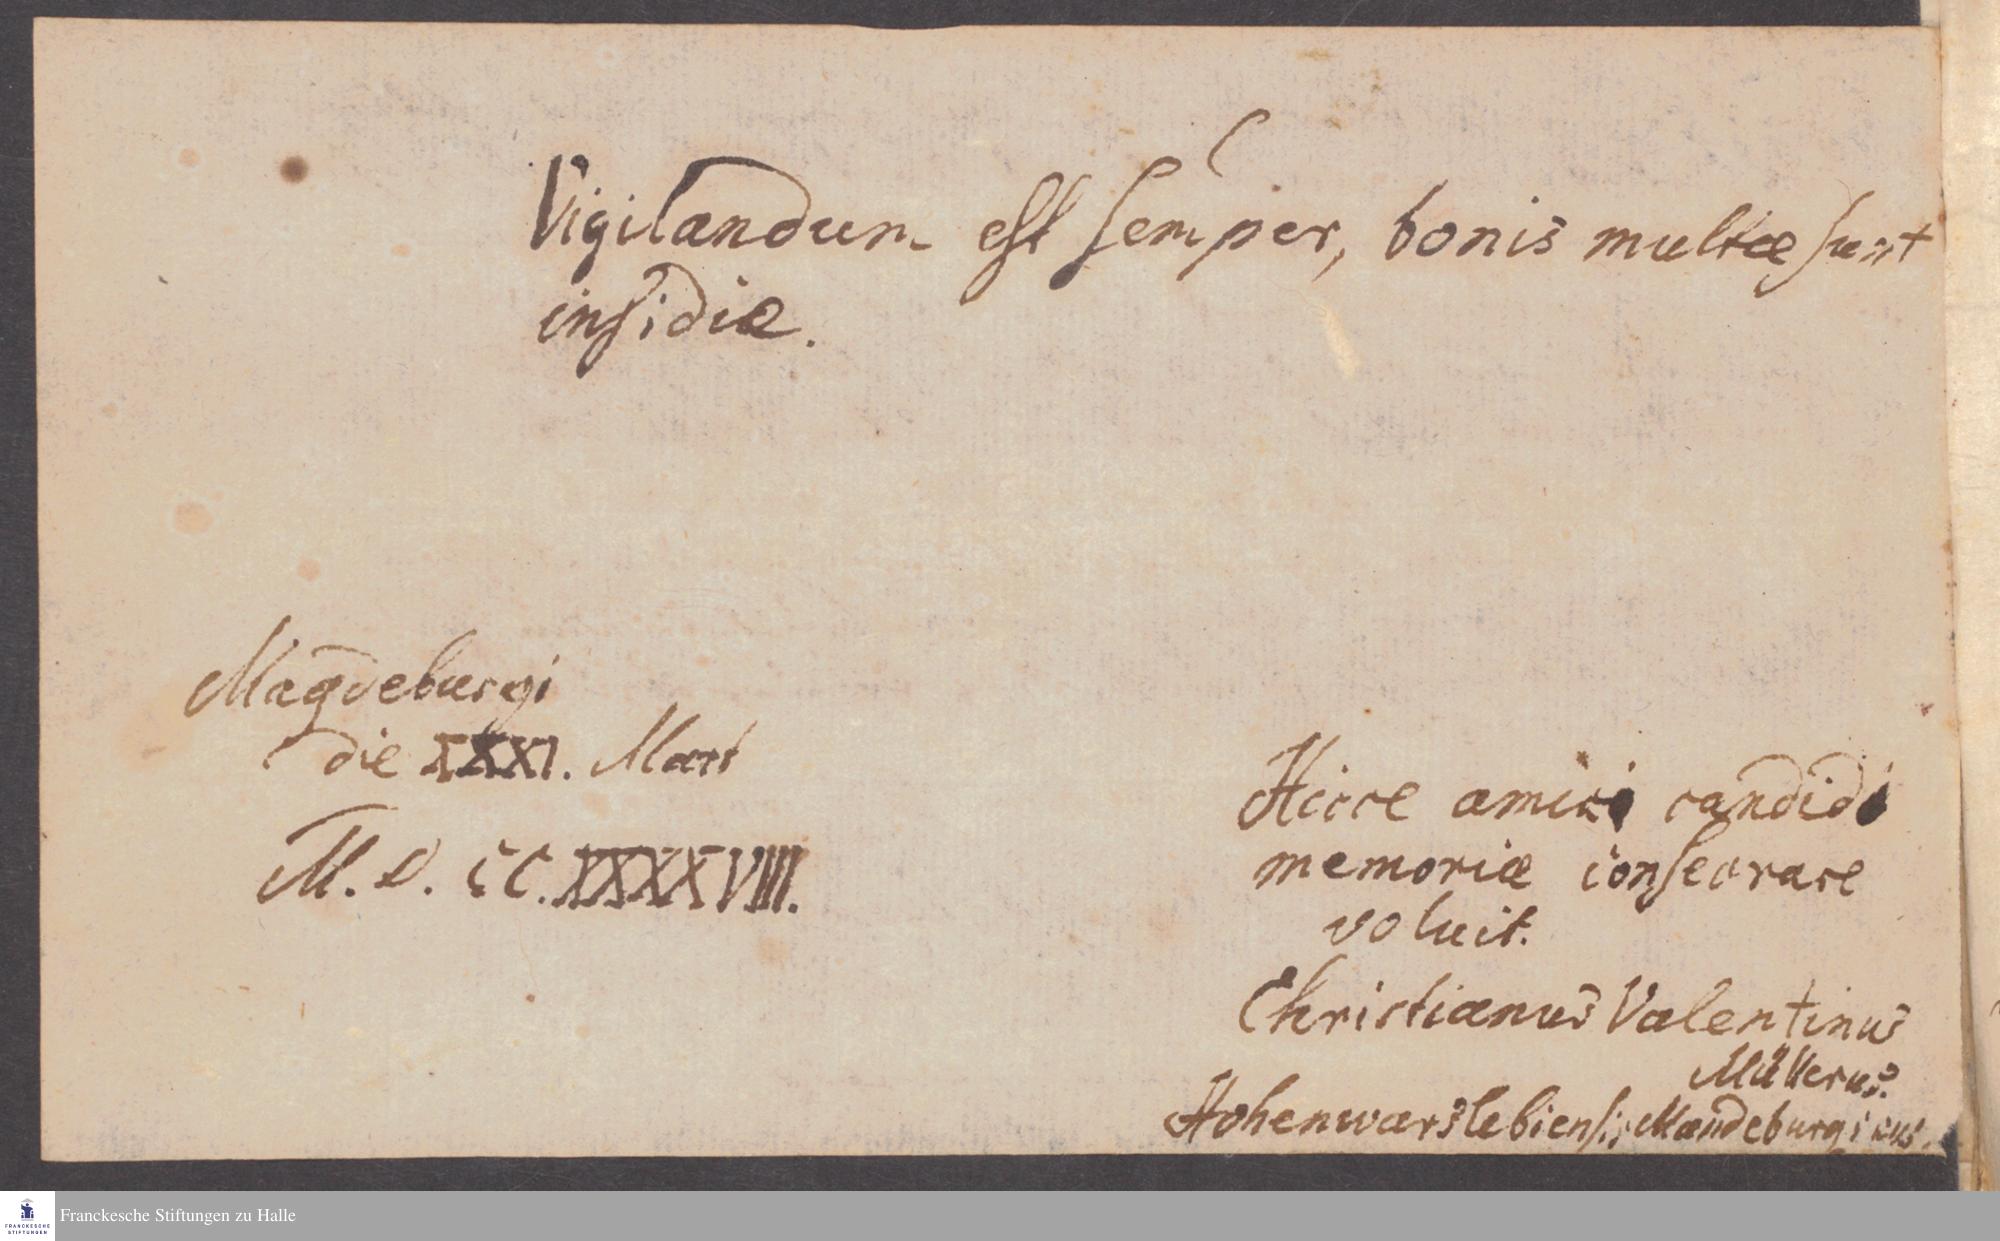 Vigilandum est semper, bonis multæ sunt
insidiæ.
Magdeburgi
die XXXI. Mart
M. D. CC. XXXXVIII.
Hicce amici candidi
memoriæ consecrare
voluit.
Christianus Valentinus
Müllerus.
Hohenwarslebiensis Magdeburgicus.
FRANCKESCHE
STIFTUNGEN
Franckesche Stiftungen zu Halle